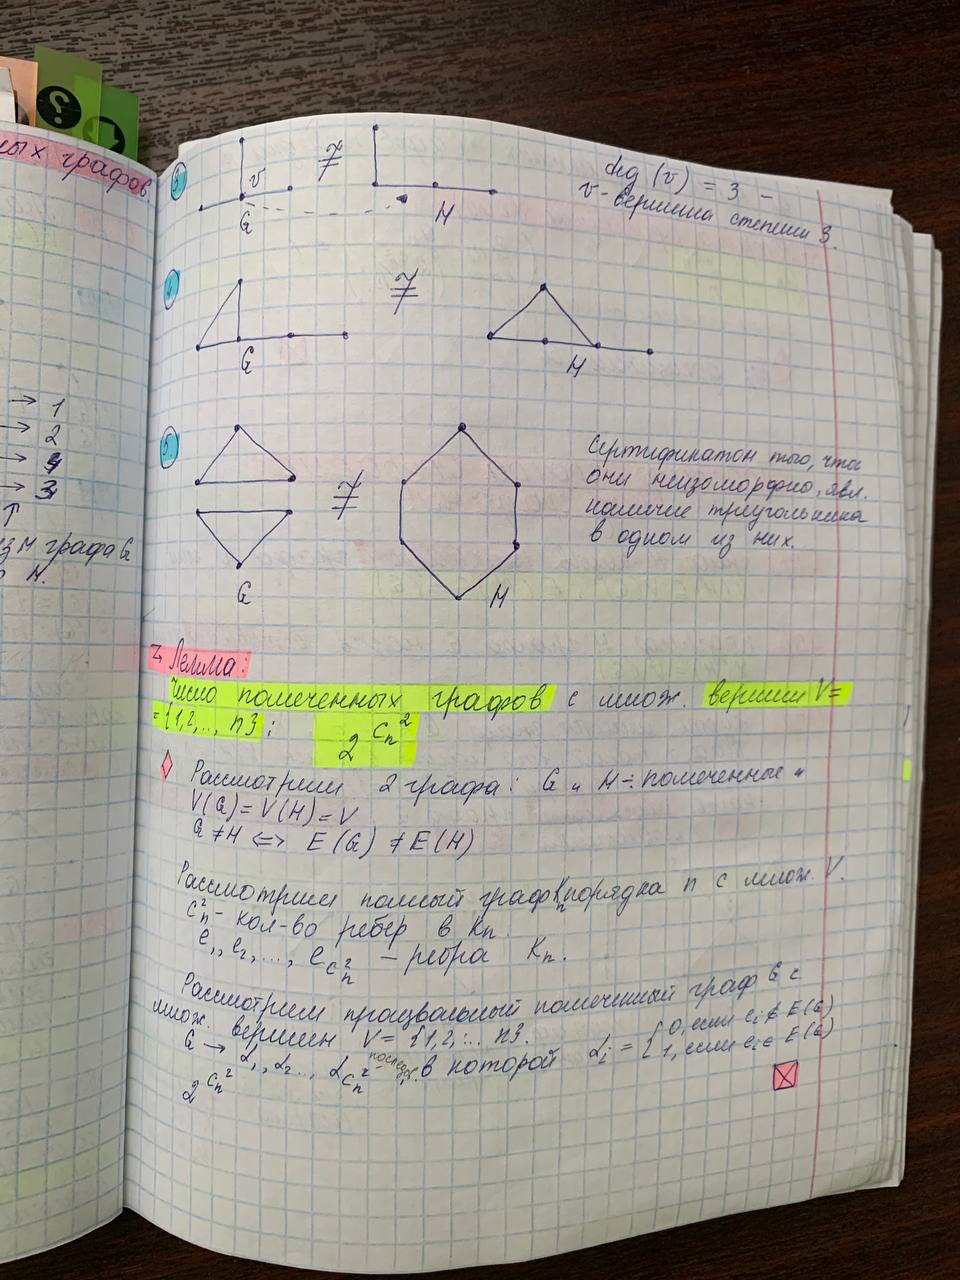 ных графов.
→ 1
→ 2
→ 4
→ 3
↑
графа G
H.
3) v G ≇ H deg (v) = 3 -
v - вершина степени 3.
4) G ≇ H
5) G ≇ H
Сертификатом того, что
они неизоморфно, явл.
наличие треугольника
в одном из них.
Лемма:
Число помеченных графов с множ. вершин V=
={1,2,.., n}: 2^{C_n^2}
Рассмотрим 2 графа: G и H - помеченные и
V(G) = V(H) = V
G ≠ H ⇔ E(G) ≠ E(H)
Рассмотрим полный граф K_n порядка n с множ. V.
C_n^2 - кол-во ребер в K_n.
e_1, e_2, ..., e_{C_n^2} - ребра K_n.
Рассмотрим произвальный помеченный граф G с
множ. вершин V = {1,2,... n}.
G → α_1, α_2 ..., α_{C_n^2} послед. в которой α_i = { 0, если e_i ∉ E(G)
1, если e_i ∈ E(G)
2^{C_n^2}